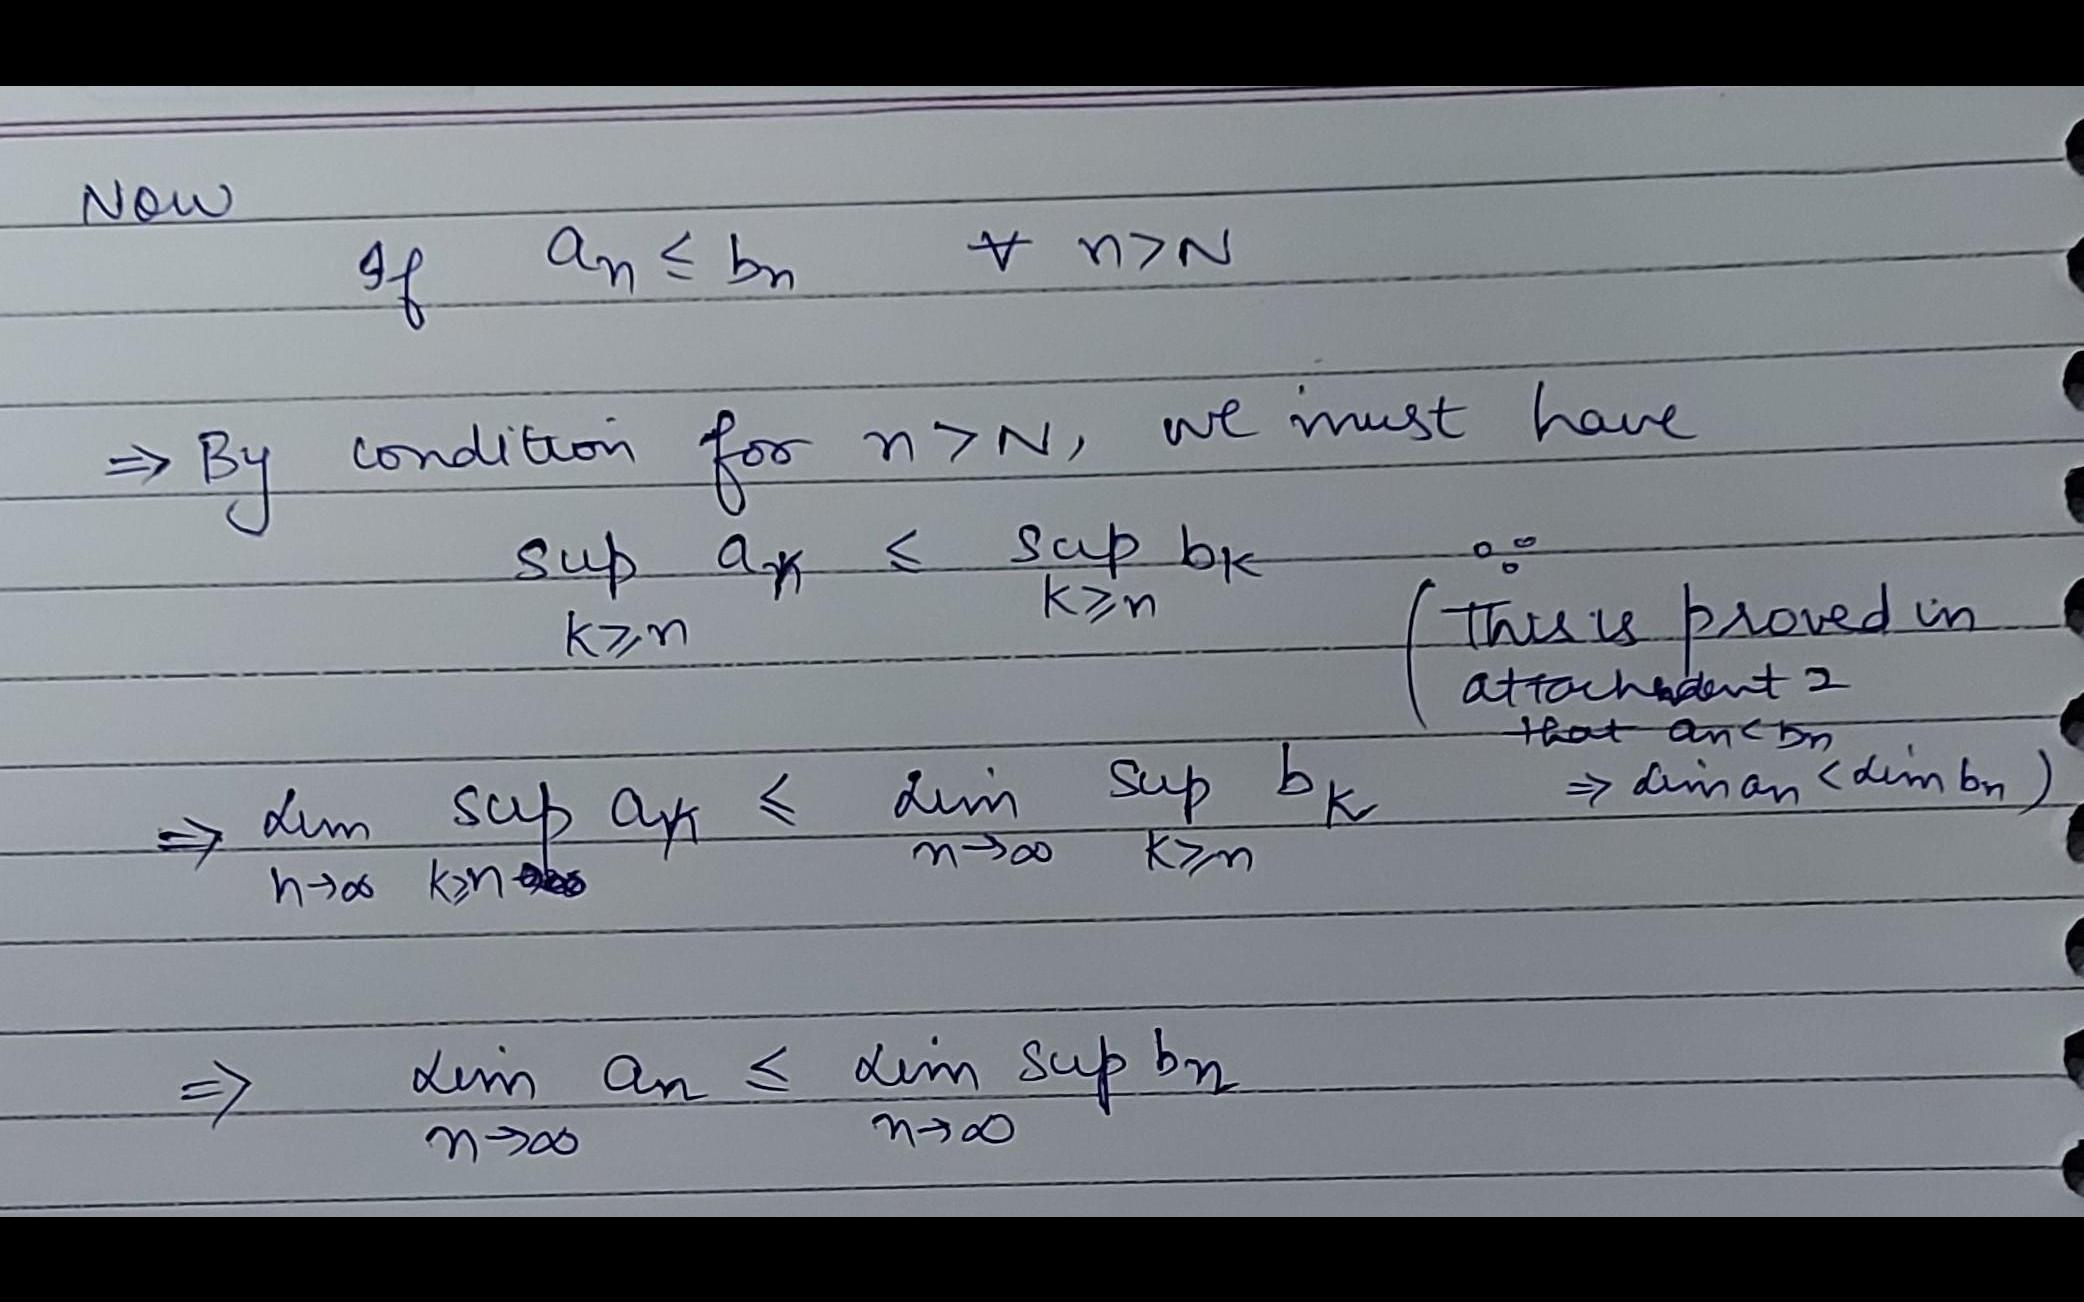 Now
If an ≤ bn ∀ n>N
⇒ By condition for n>N, we must have
sup ak ≤ sup bk ∵
k≥n k≥n
(This is proved in
attachment 2
that an<bn
⇒ lim an < lim bn)
⇒ lim sup ak ≤ lim sup bk
n→∞ k≥n n→∞ k≥n
⇒ lim an ≤ lim sup bn
n→∞ n→∞